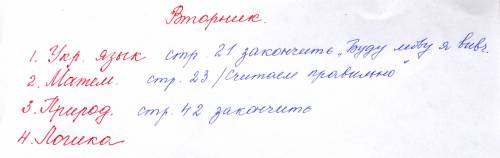 Вторник.
1. Укр. язык стр. 21 закончить „Буду мову я вивч.
2. Матем. стр. 23 / Считаем правильно"
3. Природ. стр. 42 закончить
4. Логика